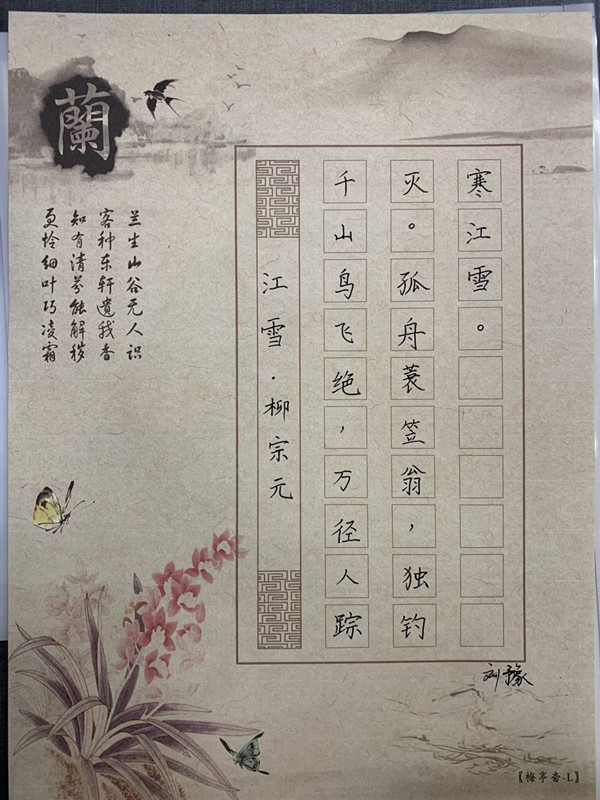 蘭
兰生山谷无人识
客种东轩遗我香
知有清芬能解秽
更怜细叶巧凌霜
江雪·柳宗元
千山鸟飞绝，万径人踪
灭。孤舟蓑笠翁，独钓
寒江雪。
刘豫
【梅亭斋-L】